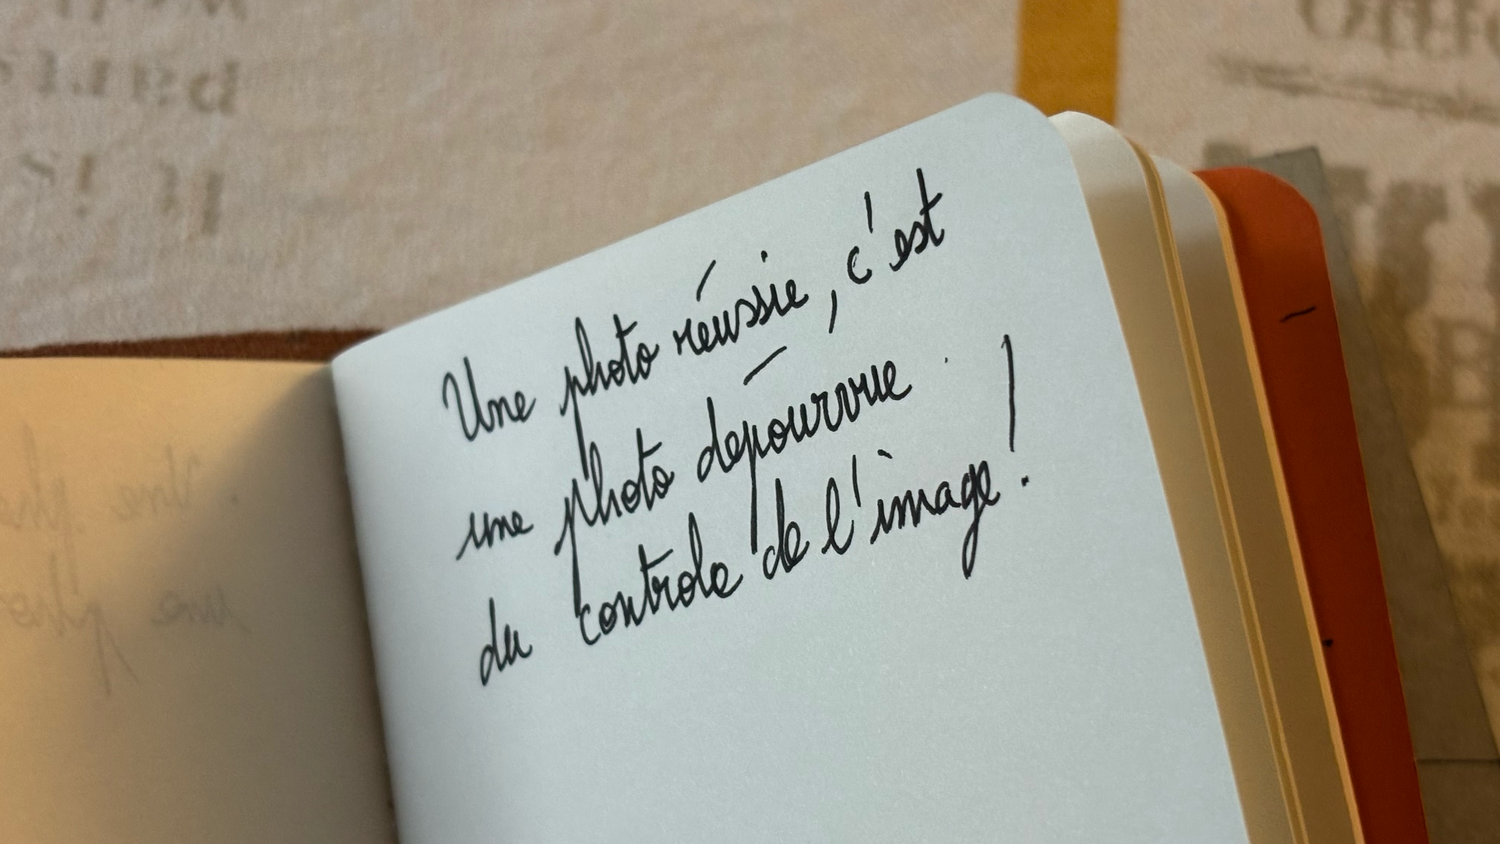 Une photo réussie, c'est
une photo dépourvue
du controle de l'image !